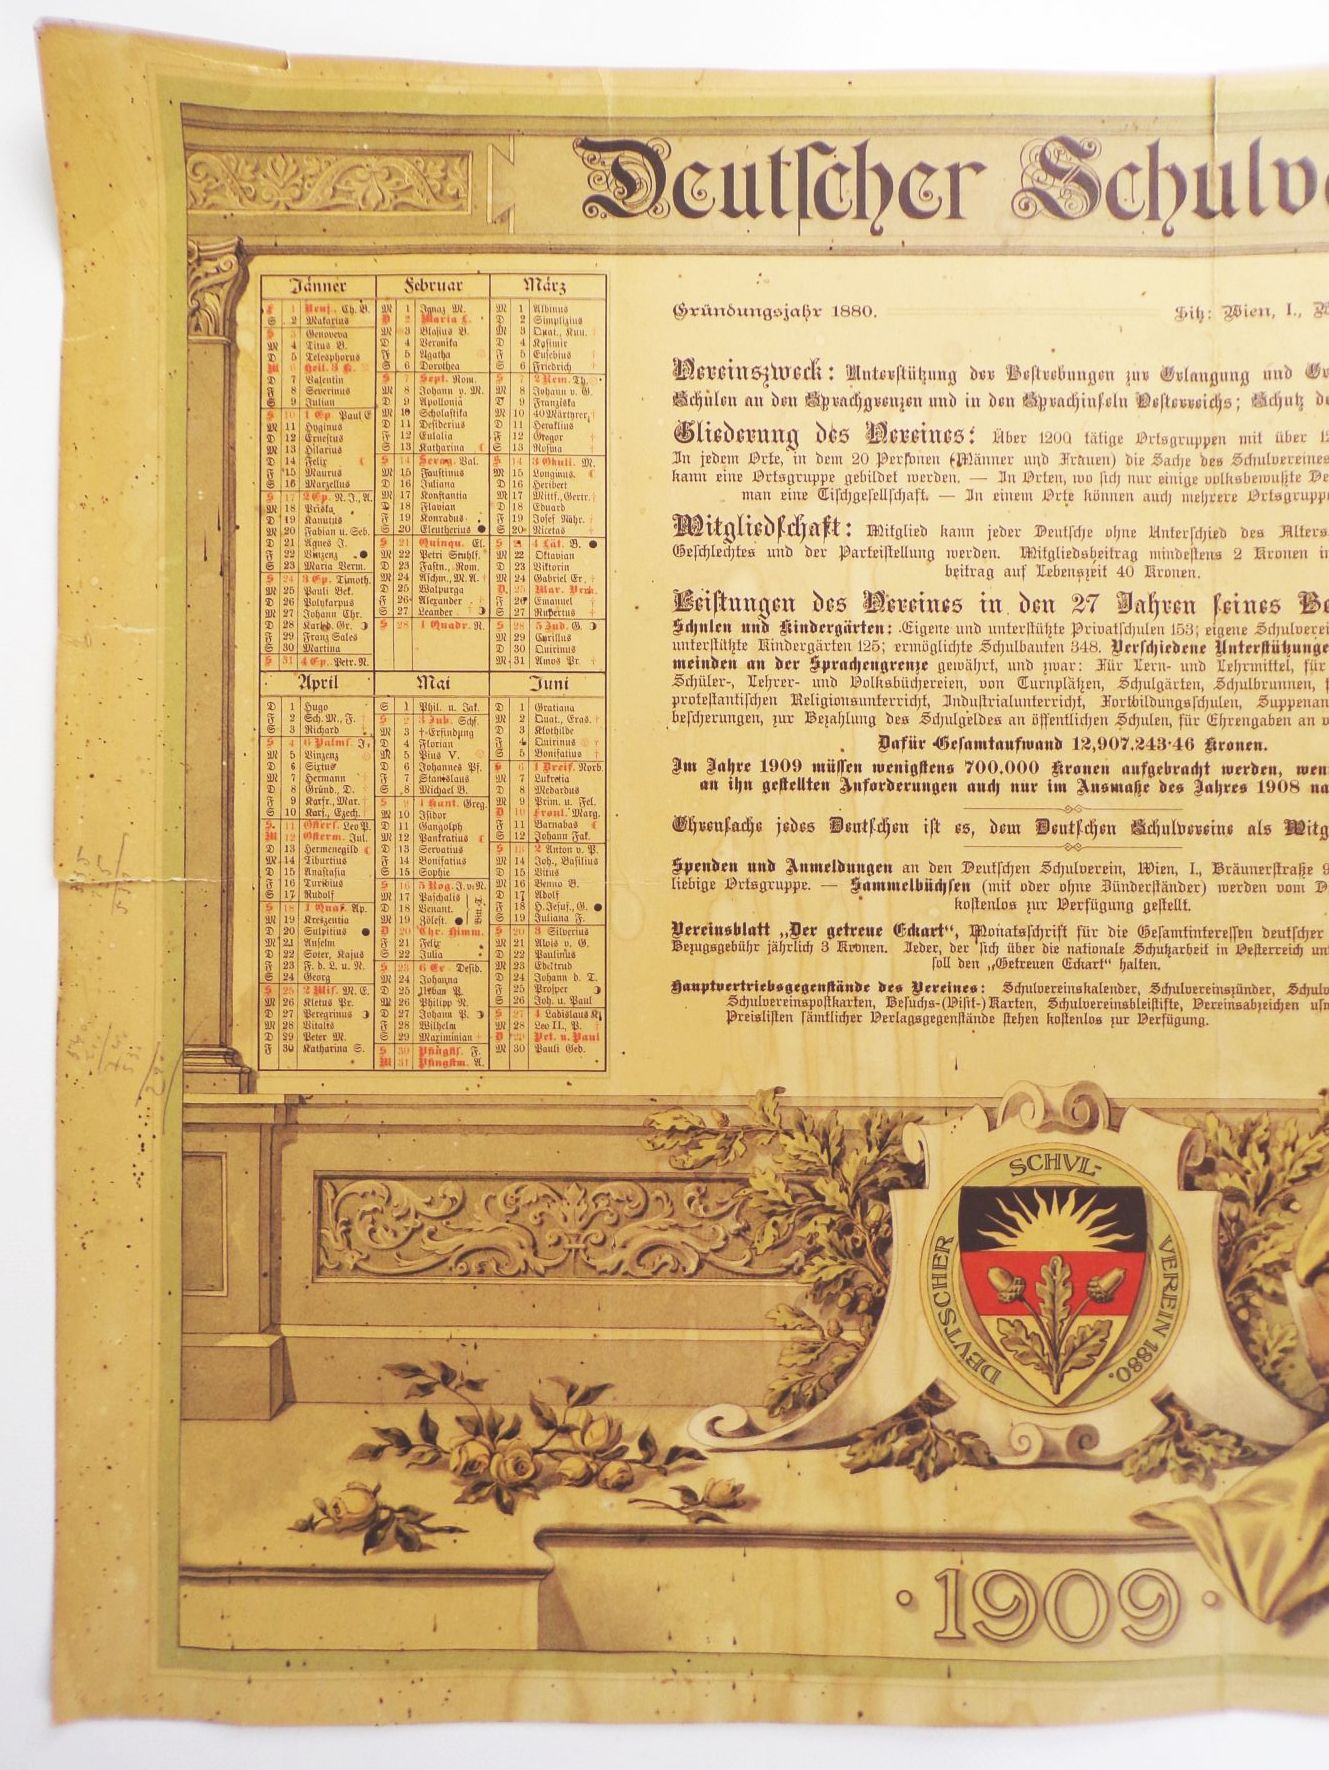 Deutscher Schulv
Jänner Februar März
1 Neuj., Ch. B.
2 Makarius
3 Genoveva
4 Titus B.
5 Telesphorus
6 Heil. 3 K.
7 Valentin
8 Severinus
9 Julian
10 1 Ep. Paul E
11 Hyginus
12 Ernestus
13 Hilarius
14 Felix
15 Maurus
16 Marzellus
17 2 Ep. N. J., A.
18 Priska
19 Kanutus
20 Fabian u. Seb.
21 Agnes J.
22 Vinzenz
23 Maria Verm.
24 3 Ep. Timoth.
25 Pauli Bek.
26 Polykarpus
27 Johann Chr.
28 Karl d. Gr.
29 Franz Sales
30 Martina
31 4 Ep. Petr. N.
1 Ignaz M.
2 Maria L.
3 Blasius B.
4 Veronika
5 Agatha
6 Dorothea
7 Sept. Rom.
8 Johann v. M.
9 Apollonia
10 Scholastika
11 Desiderius
12 Eulalia
13 Katharina
14 Serag. Val.
15 Faustinus
16 Juliana
17 Konstantia
18 Flavian
19 Konradus
20 Eleutherius
21 Quinqu. El.
22 Petri Stuhlf.
23 Fastn., Rom.
24 Aschm., M. A.
25 Walpurga
26 Alexander
27 Leander
28 1 Quadr. R.
1 Albinus
2 Simplizius
3 Quat., Kun.
4 Kasimir
5 Eusebius
6 Friedrich
7 2 Rem. Th.
8 Johann v. G.
9 Franziska
10 40 Märtyrer
11 Heraklius
12 Gregor
13 Rosina
14 3 Okuli. M.
15 Longinus
16 Heribert
17 Mittf., Gertr.
18 Eduard
19 Josef Nähr.
20 Nicetas
21 4 Lät. B.
22 Oktavian
23 Viktorin
24 Gabriel Er.
25 Mar. Verk.
26 Emanuel
27 Rupertus
28 5 Jud. G.
29 Cyrillus
30 Quirinus
31 Amos Pr.
April Mai Juni
1 Hugo
2 Sch. M., F.
3 Richard
4 6 Palms. J.
5 Vinzenz
6 Sixtus
7 Hermann
8 Gründ., D.
9 Karfr., Mar.
10 Kars., Ezech.
11 Osters. Leo P.
12 Osterm. Jul.
13 Hermenegild
14 Tiburtius
15 Anastasia
16 Turibius
17 Rudolf
18 1 Quas. Ap.
19 Kreszentia
20 Sulpitius
21 Anselm
22 Soter, Kajus
23 F. d. L. u. N.
24 Georg
25 2 Mis. M. E.
26 Kletus Pr.
27 Peregrinus
28 Vitalis
29 Peter M.
30 Katharina S.
1 Phil. u. Jak.
2 3 Jub. Schf.
3 †-Erfindung
4 Florian
5 Pius V.
6 Johannes Pf.
7 Stanislaus
8 Michael B.
9 4 Kant. Greg.
10 Isidor
11 Gangolph
12 Pankratius
13 Servatius
14 Bonifatius
15 Sophie
16 5 Rog. J. v. N.
17 Paschalis
18 Venant.
19 Zölest.
20 Chr. Himm.
21 Felix
22 Julia
23 6 Ex. Desid.
24 Johanna
25 Urban P.
26 Philipp N.
27 Johann P.
28 Wilhelm
29 Maximinian
30 Pfingsts. F.
31 Pfingstm. A.
1 Gratiana
2 Quat., Eras.
3 Klothilde
4 Quirinus
5 Bonifatius
6 1 Dreif. Norb.
7 Lukretia
8 Medardus
9 Prim. u. Fel.
10 Fronl. Marg.
11 Barnabas
12 Johann Fak.
13 2 Anton v. P.
14 Joh., Basilius
15 Vitus
16 Benno B.
17 Adolf
18 H. Jesuf., G.
19 Juliana F.
20 3 Silverius
21 Alois v. G.
22 Paulinus
23 Edeltrud
24 Johann d. T.
25 Prosper
26 Joh. u. Paul
27 4 Ladislaus K.
28 Leo II., P.
29 Pet. u. Paul
30 Pauli Ged.
Gründungsjahr 1880. Sitz: Wien, I.,
Vereinszweck: Unterstützung der Bestrebungen zur Erlangung und
Schulen an den Sprachgrenzen und in den Sprachinseln Oesterreichs; Schutz
Gliederung des Vereines: Über 1200 tätige Ortsgruppen mit über
In jedem Orte, in dem 20 Personen (Männer und Frauen) die Sache des Schulvereines
kann eine Ortsgruppe gebildet werden. — In Orten, wo sich nur einige volksbewußte
man eine Tischgesellschaft. — In einem Orte können auch mehrere Ortsgrupp
Mitgliedschaft: Mitglied kann jeder Deutsche ohne Unterschied des Alters
Geschlechtes und der Parteistellung werden. Mitgliedsbeitrag mindestens 2 Kronen
beitrag auf Lebenszeit 40 Kronen.
Leistungen des Vereines in den 27 Jahren seines Be
Schulen und Kindergärten: Eigene und unterstützte Privatschulen 153; eigene Schulverei
unterstützte Kindergärten 125; ermöglichte Schulbauten 348. Verschiedene Unterstützunge
meinden an der Sprachengrenze gewährt, und zwar: Für Lern- und Lehrmittel, für
Schüler-, Lehrer- und Volksbüchereien, von Turnplätzen, Schulgärten, Schulbrunnen,
protestantischen Religionsunterricht, Industrialunterricht, Fortbildungsschulen, Suppenan
bescherungen, zur Bezahlung des Schulgeldes an öffentlichen Schulen, für Ehrengaben an
Dafür Gesamtaufwand 12,907.243·46 Kronen.
Im Jahre 1909 müssen wenigstens 700.000 Kronen aufgebracht werden, wen
an ihn gestellten Anforderungen auch nur im Ausmaße des Jahres 1908 na
Ehrensache jedes Deutschen ist es, dem Deutschen Schulvereine als Mitg
Spenden und Anmeldungen an den Deutschen Schulverein, Wien, I., Bräunerstraße 9
liebige Ortsgruppe. — Sammelbüchsen (mit oder ohne Zünderständer) werden vom D
kostenlos zur Verfügung gestellt.
Vereinsblatt „Der getreue Eckart“, Monatsschrift für die Gesamtinteressen deutscher
Bezugsgebühr jährlich 3 Kronen. Jeder, der sich über die nationale Schutzarbeit in Oesterreich un
soll den „Getreuen Eckart“ halten.
Hauptvertriebsgegenstände des Vereines: Schulvereinskalender, Schulvereinszünder, Schulv
Schulvereinspostkarten, Besuchs-(Visit-)Karten, Schulvereinsbleistifte, Vereinsabzeichen usw
Preislisten sämtlicher Verlagsgegenstände stehen kostenlos zur Verfügung.
DEVTSCHER SCHVL-VEREIN 1880.
· 1909 ·